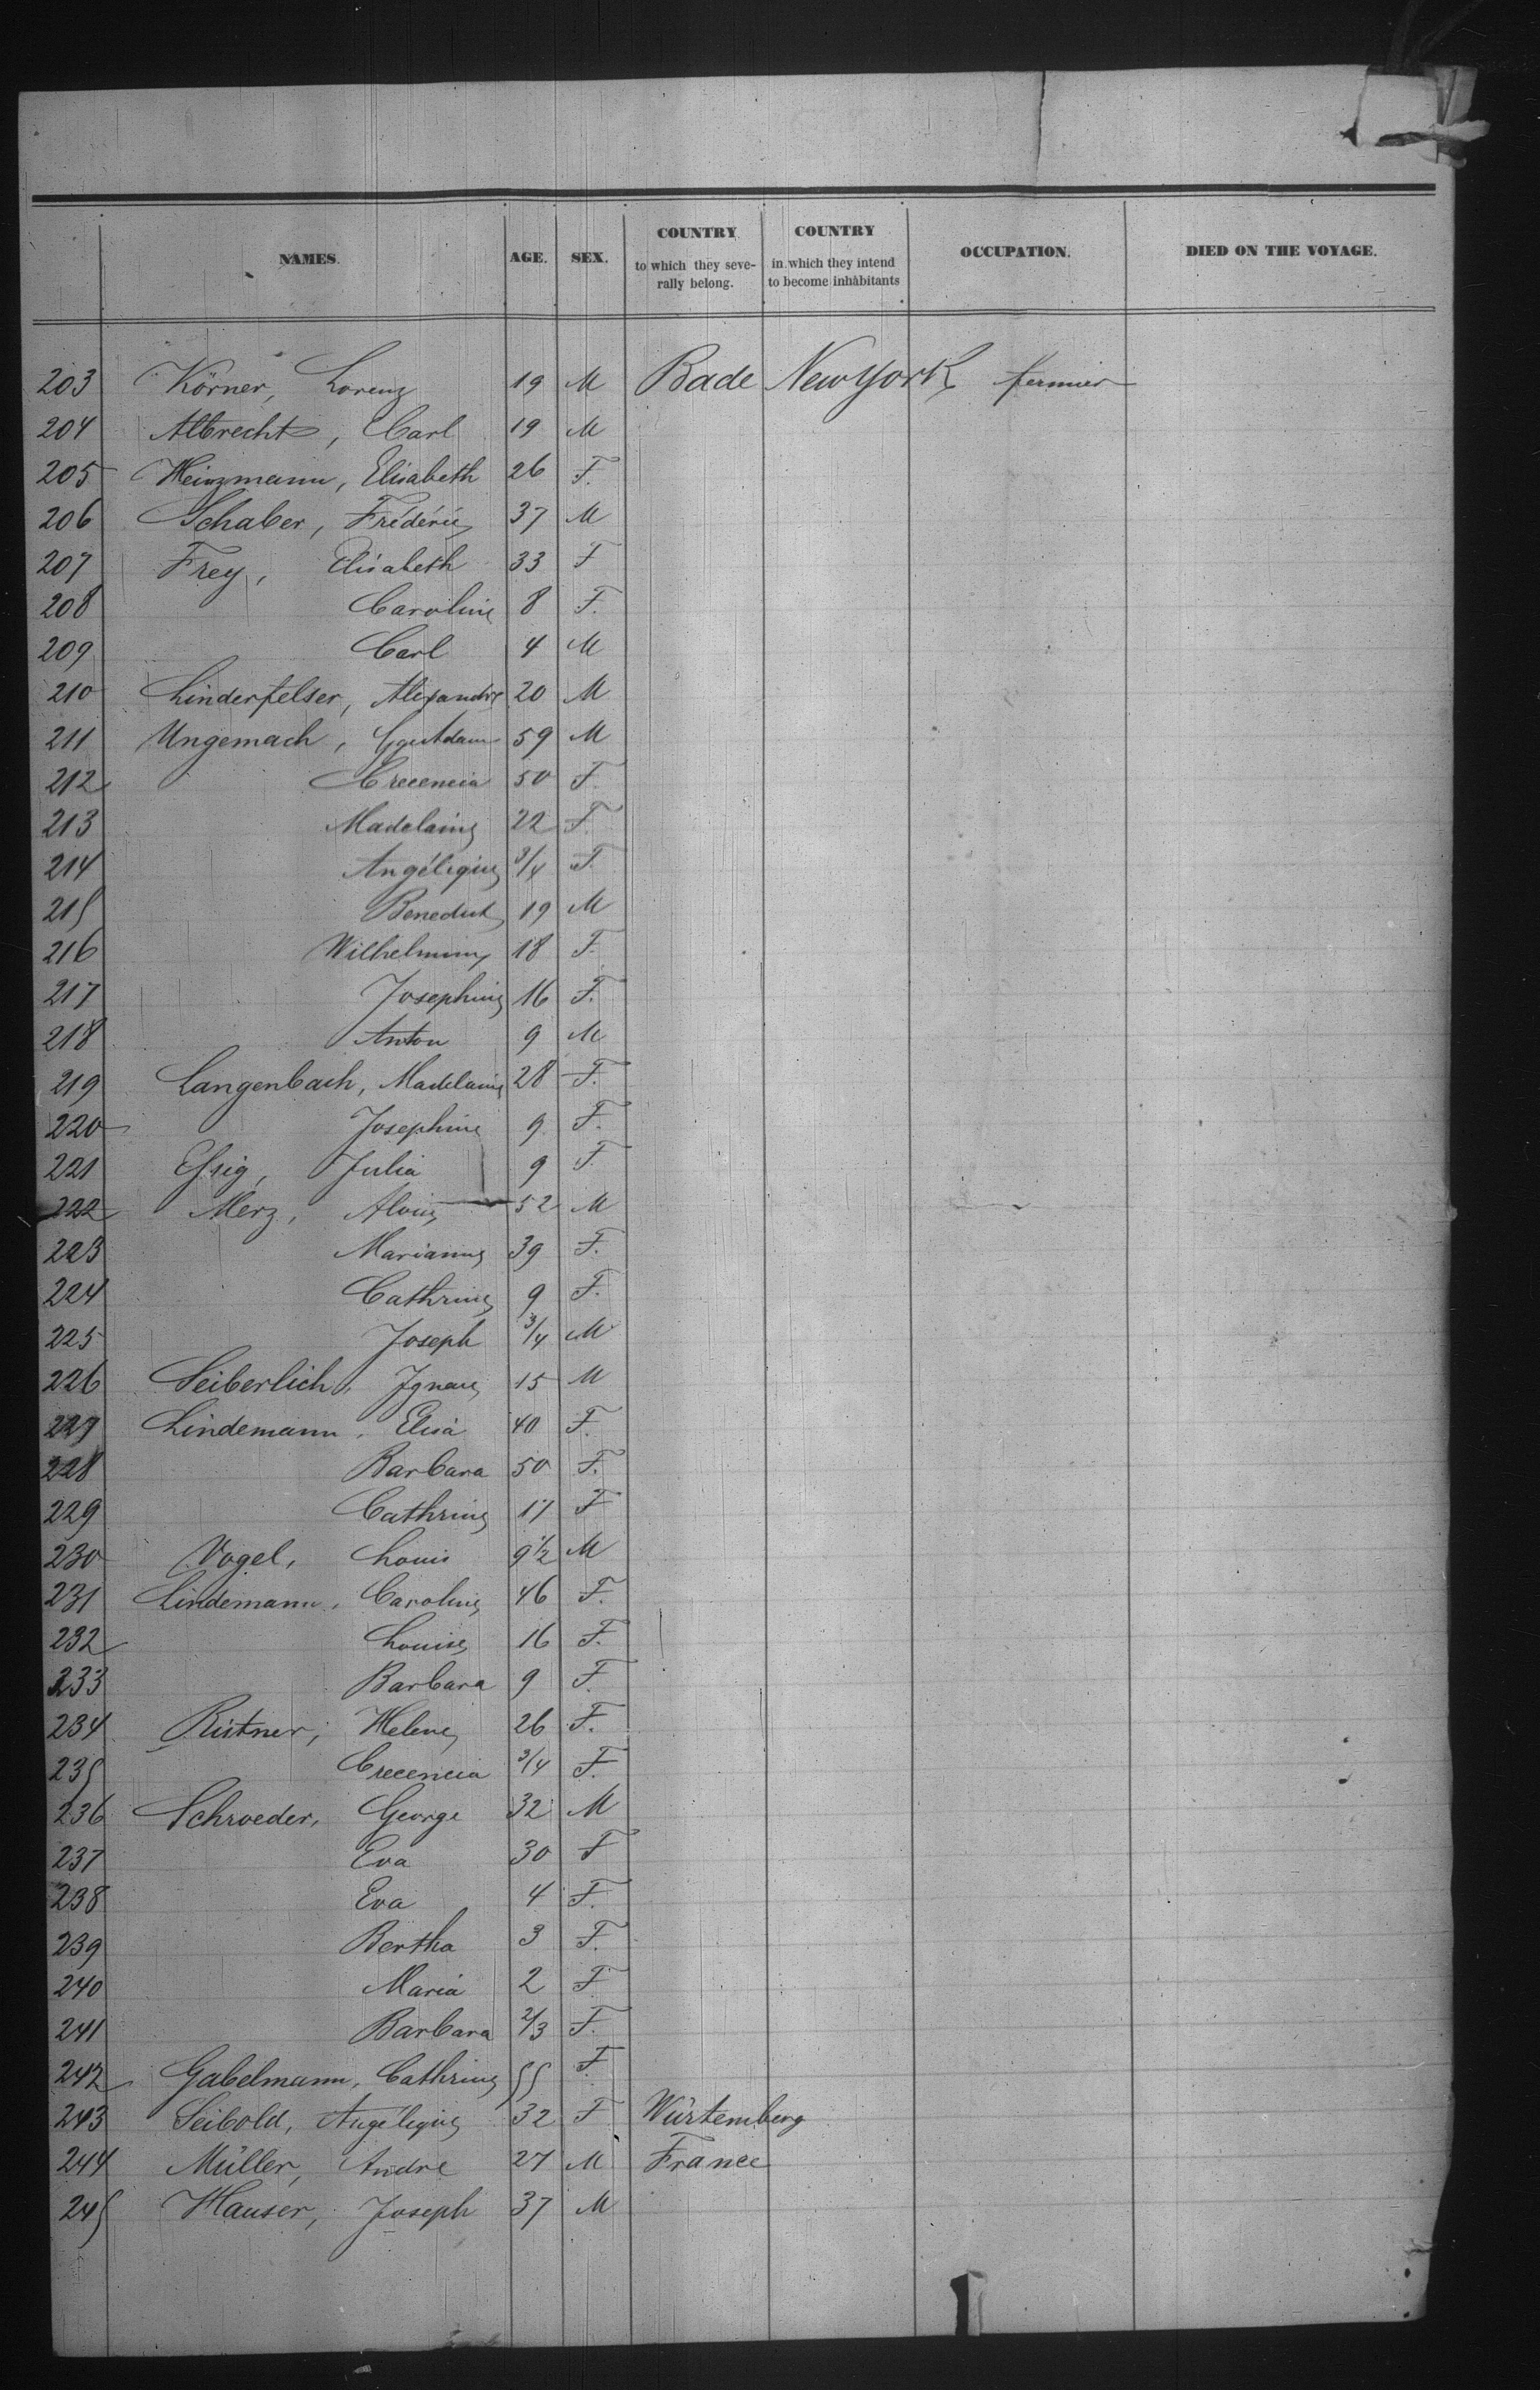 NAMES. AGE. SEX. COUNTRY to which they severally belong. COUNTRY in which they intend to become inhabitants OCCUPATION. DIED ON THE VOYAGE.
203 Körner, Lorenz 19 M Bade New York fermier
204 Albrecht, Carl 19 M
205 Heinzmann, Elisabeth 26 F.
206 Schaber, Fréderic 37 M
207 Frey, Elisabeth 33 F
208 Caroline 8 F.
209 Carl 4 M
210 Linderfelser, Alexandre 20 M
211 Ungemach, Adam 59 M
212 Crecencia 50 F.
213 Madelaine 22 F.
214 Angélique 3/4 F.
215 Benedict 19 M
216 Wilhelmine 18 F.
217 Josephine 16 F.
218 Anton 9 M
219 Langenbach, Madelaine 28 F.
220 Josephine 9 F.
221 Essig, Julia 9 F
222 Merz, Alois 52 M
223 Marianne 39 F.
224 Cathrine 9 F.
225 Joseph 3/4 M
226 Seiberlich, Ignace 15 M
227 Lindemann, Elisa 40 F.
228 Barbara 50 F.
229 Cathrine 17 F
230 Vogel, Louis 9 1/2 M
231 Lindemann, Caroline 46 F.
232 Louise 16 F.
233 Barbara 9 F.
234 Ristner, Helene 26 F.
235 Crecencia 3/4 F.
236 Schroeder, George 32 M
237 Eva 30 F
238 Eva 4 F.
239 Bertha 3 F.
240 Maria 2 F
241 Barbara 2/3 F.
242 Gabelmann, Cathrine 55 F.
243 Seibold, Angélique 32 F Würtemberg
244 Müller, Andre 27 M France
245 Hauser, Joseph 37 M